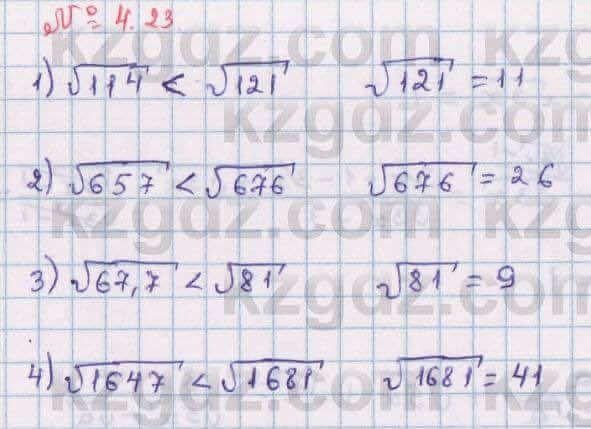 № 4.23
1) √114 < √121 √121 = 11
2) √657 < √676 √676 = 26
3) √67,7 < √81 √81 = 9
4) √1647 < √1681 √1681 = 41
kzgdz.com
kzgdz.com
kzgdz.com
kzgdz.com